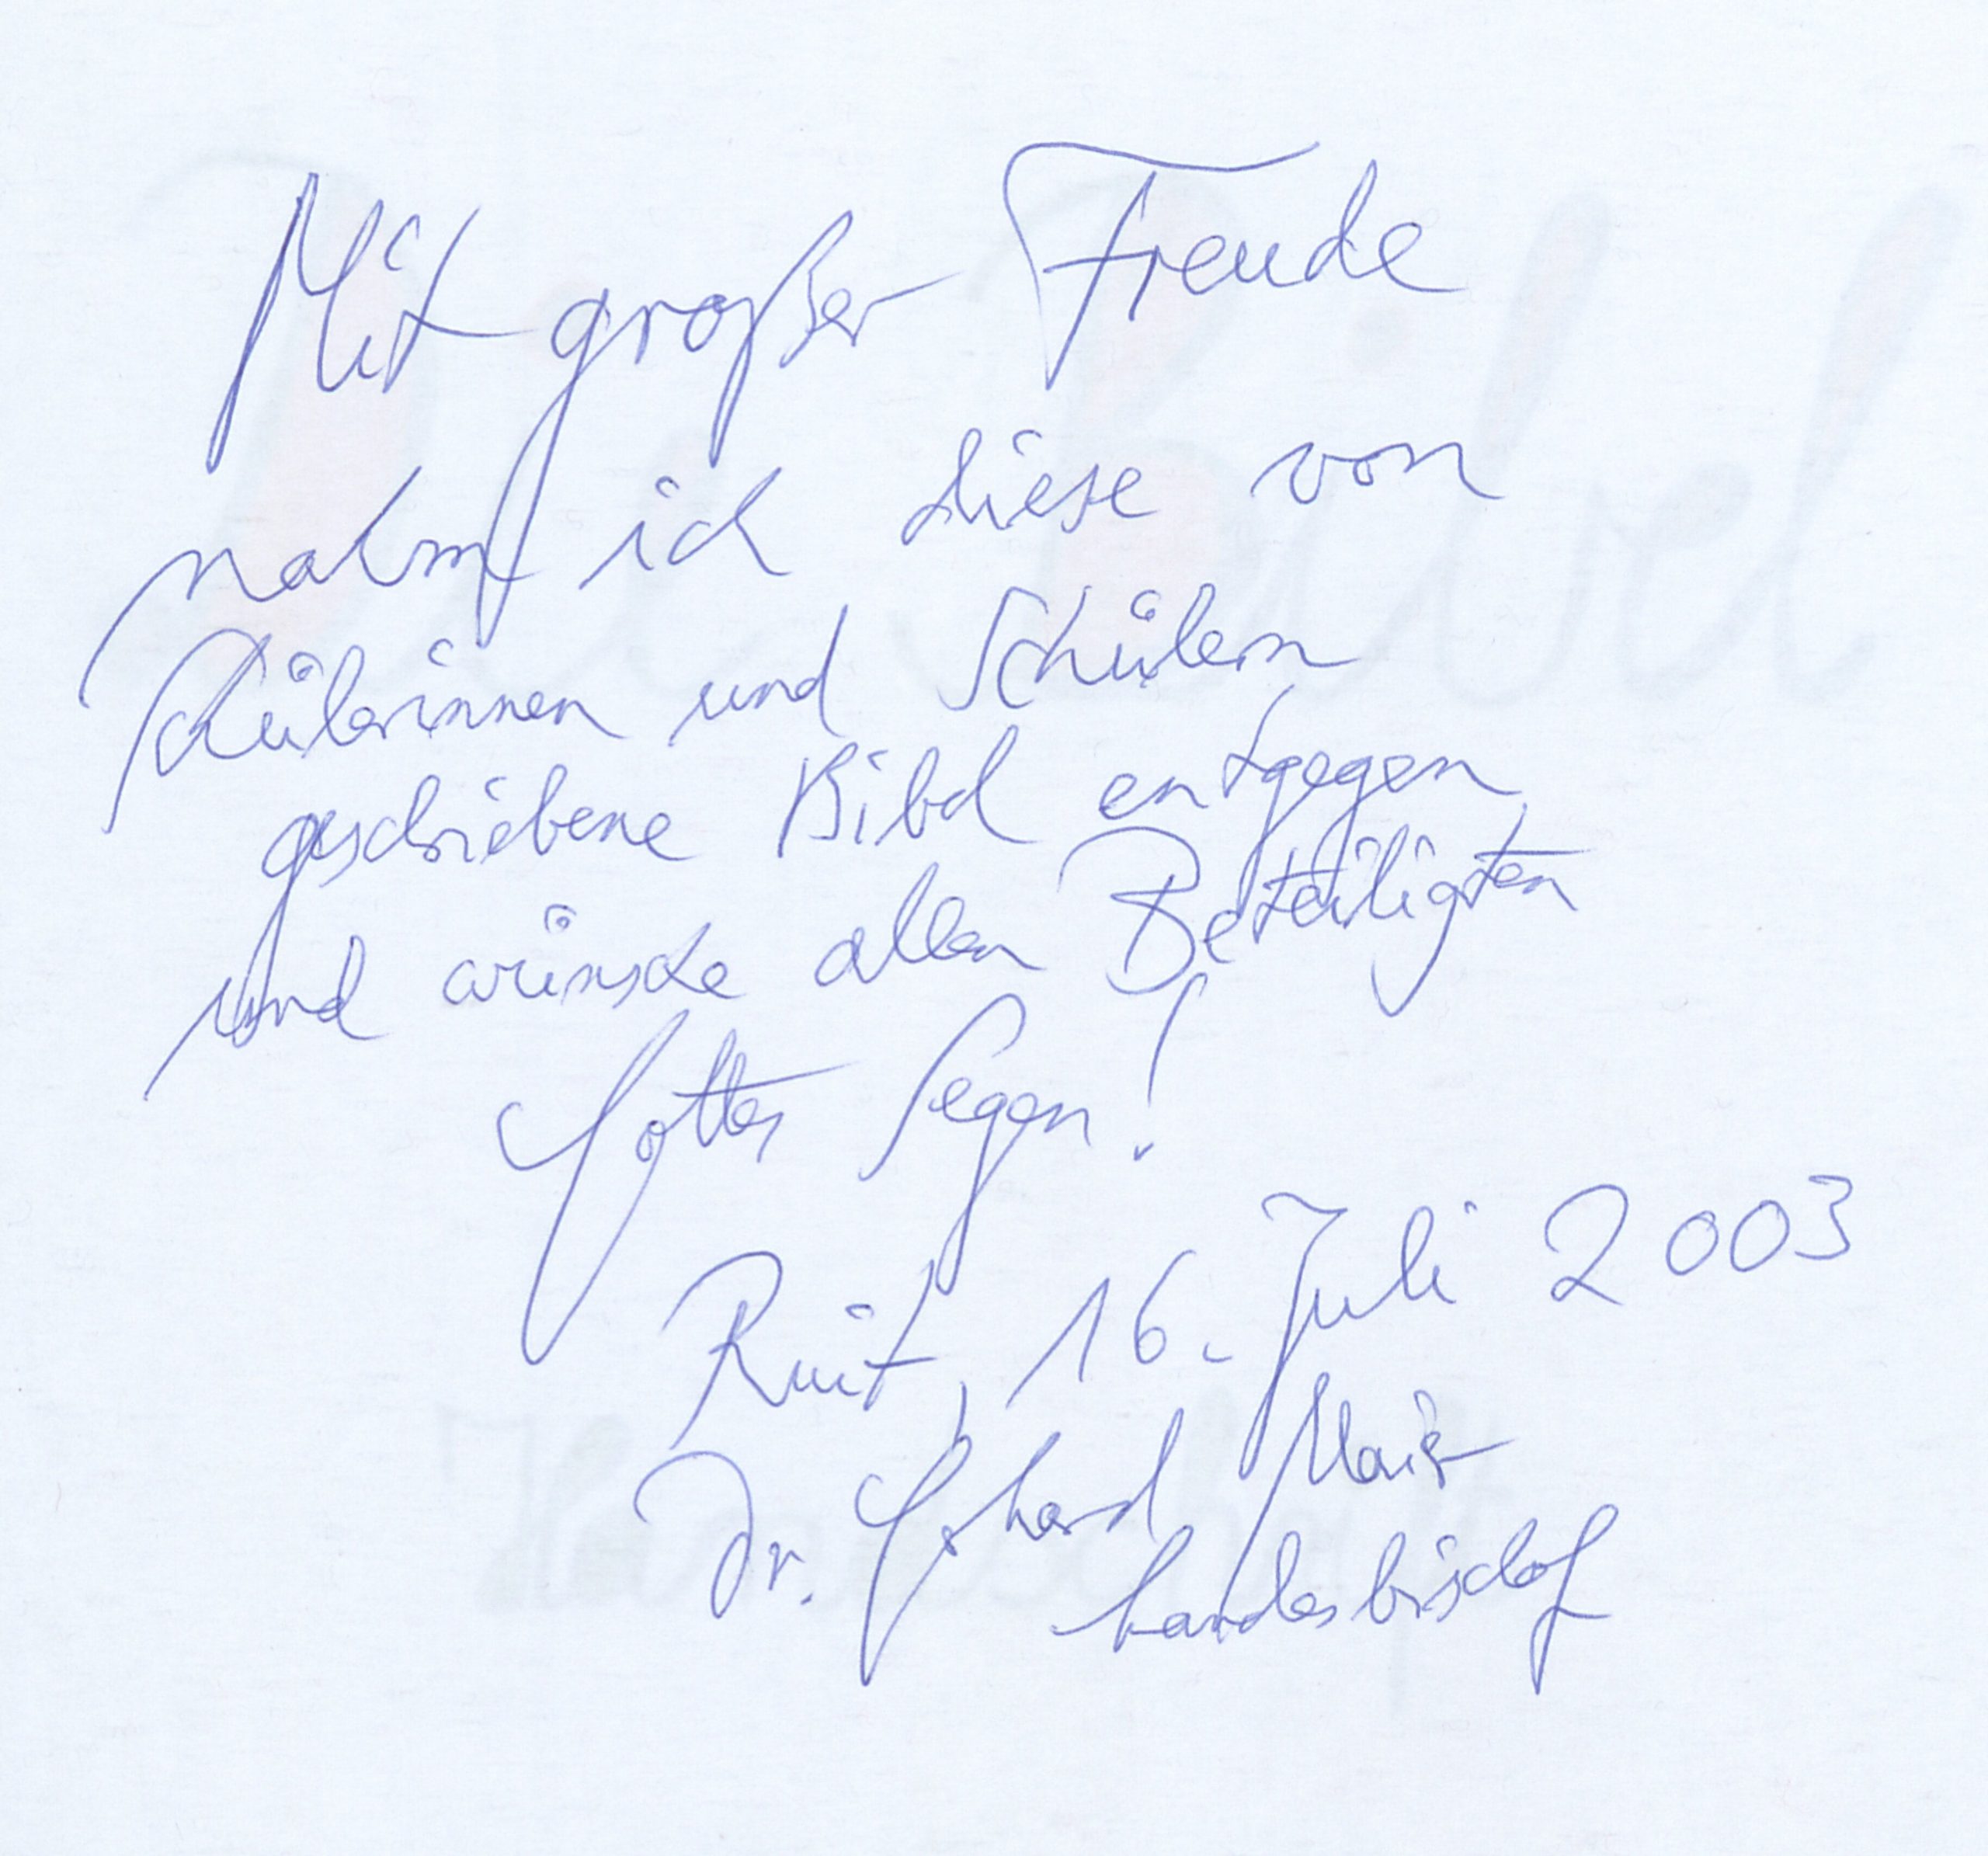 Mit großer Freude
nahm ich diese von
Schülerinnen und Schülern
geschriebene Bibel entgegen
und wünsche allen Beteiligten
Gottes Segen!
Ruit, 16. Juli 2003
Dr. Gerhard Maier
Landesbischof